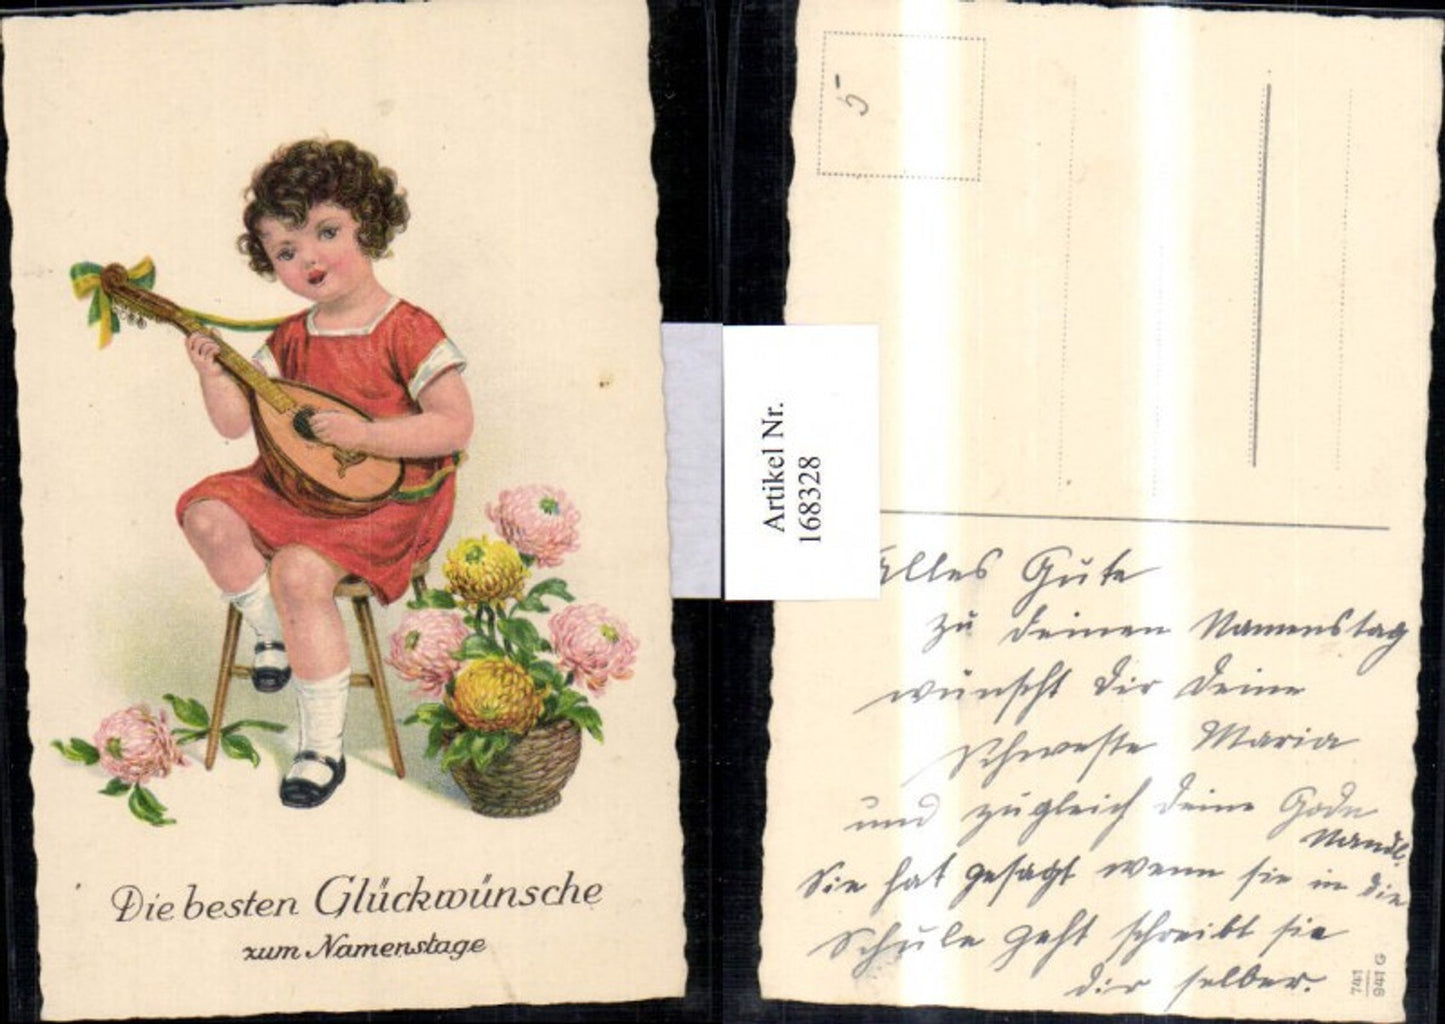 Die besten Glückwünsche
zum Namenstage
Artikel Nr.
168328
5
Alles Gute
zu deinen Namenstag
wünscht dir deine
Schweste Maria
und zugleich deine
Sie hat gesagt wenn sie in die
Schule geht schreibt sie
dir selber.
741
941 G